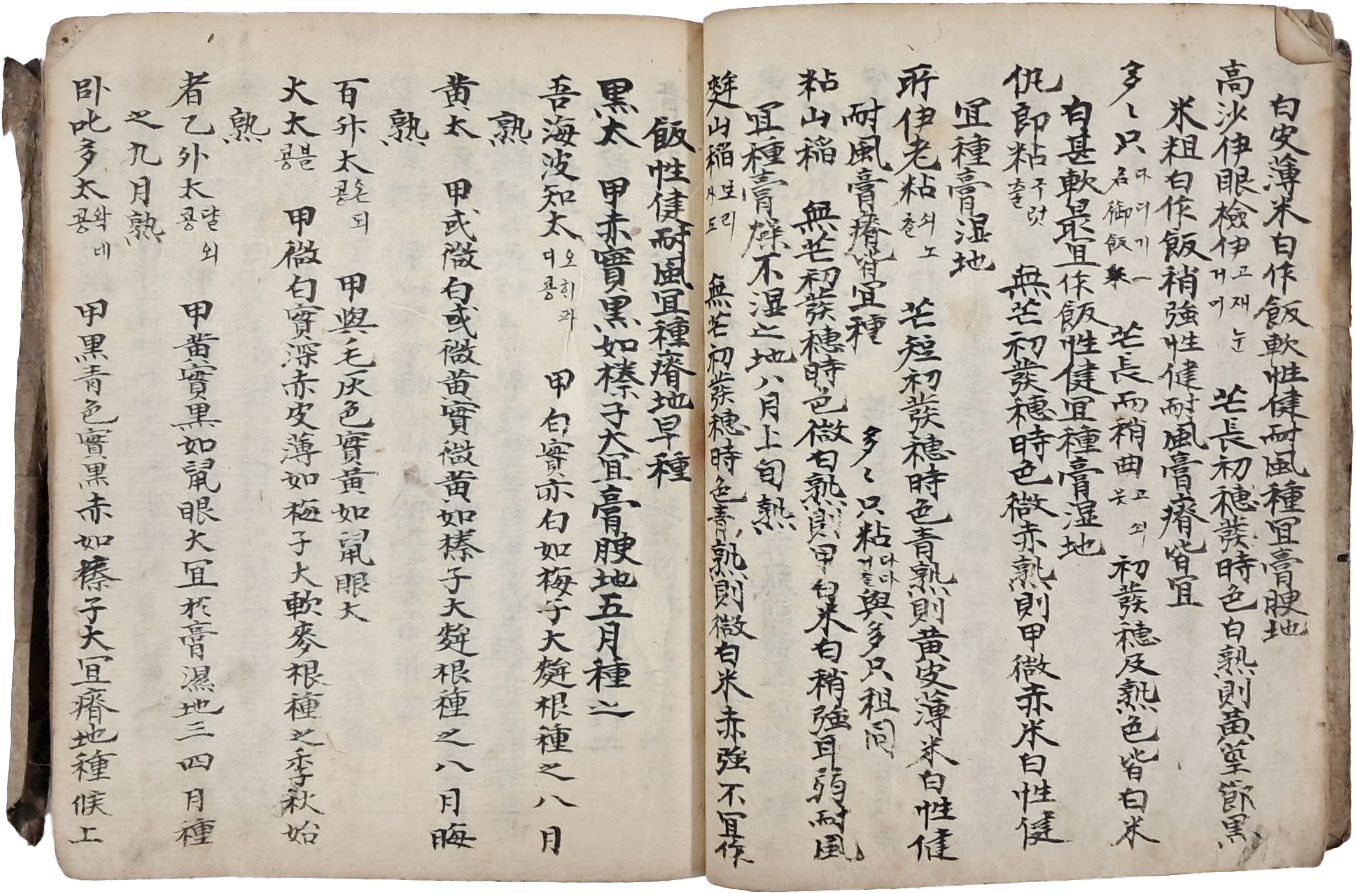 白皮薄米白作飯軟性健耐風種宜膏腴地
高沙伊眼檢伊고재눈거머 芒長初穗發時色白熟則黃莖節黑
米粗白作飯稍強性健耐風膏瘠皆宜
多〻只다디기一名御飯米 芒長而稍曲 初發穗及熟色皆白米
白甚軟最宜作飯性健宜種膏湿地
仇郎粘구럿출 無芒初發穗時色微赤熟則甲微赤米白性健
宜種膏湿地
所伊老粘쇠노출 芒短初發穗時色青熟則黄皮薄米白性健
耐風膏瘠皆宜種 多〻只粘다다기출與多只租同
粘山稲 無芒初發穗時色微白熟則甲白米白稍強耳弱耐風
宜種膏燥不湿之地八月上旬熟
麰山稲보리사도 無芒初發穗時色青熟則微白米赤強不宜作
飯性健耐風宜種瘠地早種
黒太 甲赤實黒如榛子大宜膏腴地五月種之
吾海波知太오히파디콩 甲白實亦白如梅子大麰根種之八月
熟
黄太 甲或微白或微黄實微黄如榛子大麰根種之八月晦
熟
百升太온되콩 甲與毛灰色實黃如鼠眼大
火太블콩 甲微白實深赤皮薄如梅子大軟麥根種之季秋始
熟
者乙外太댤외콩 甲黄實黒如鼠眼大宜於膏濕地三四月種
之九月熟
卧叱多太왁대콩 甲黒青色實黒赤如榛子大宜瘠地種候上